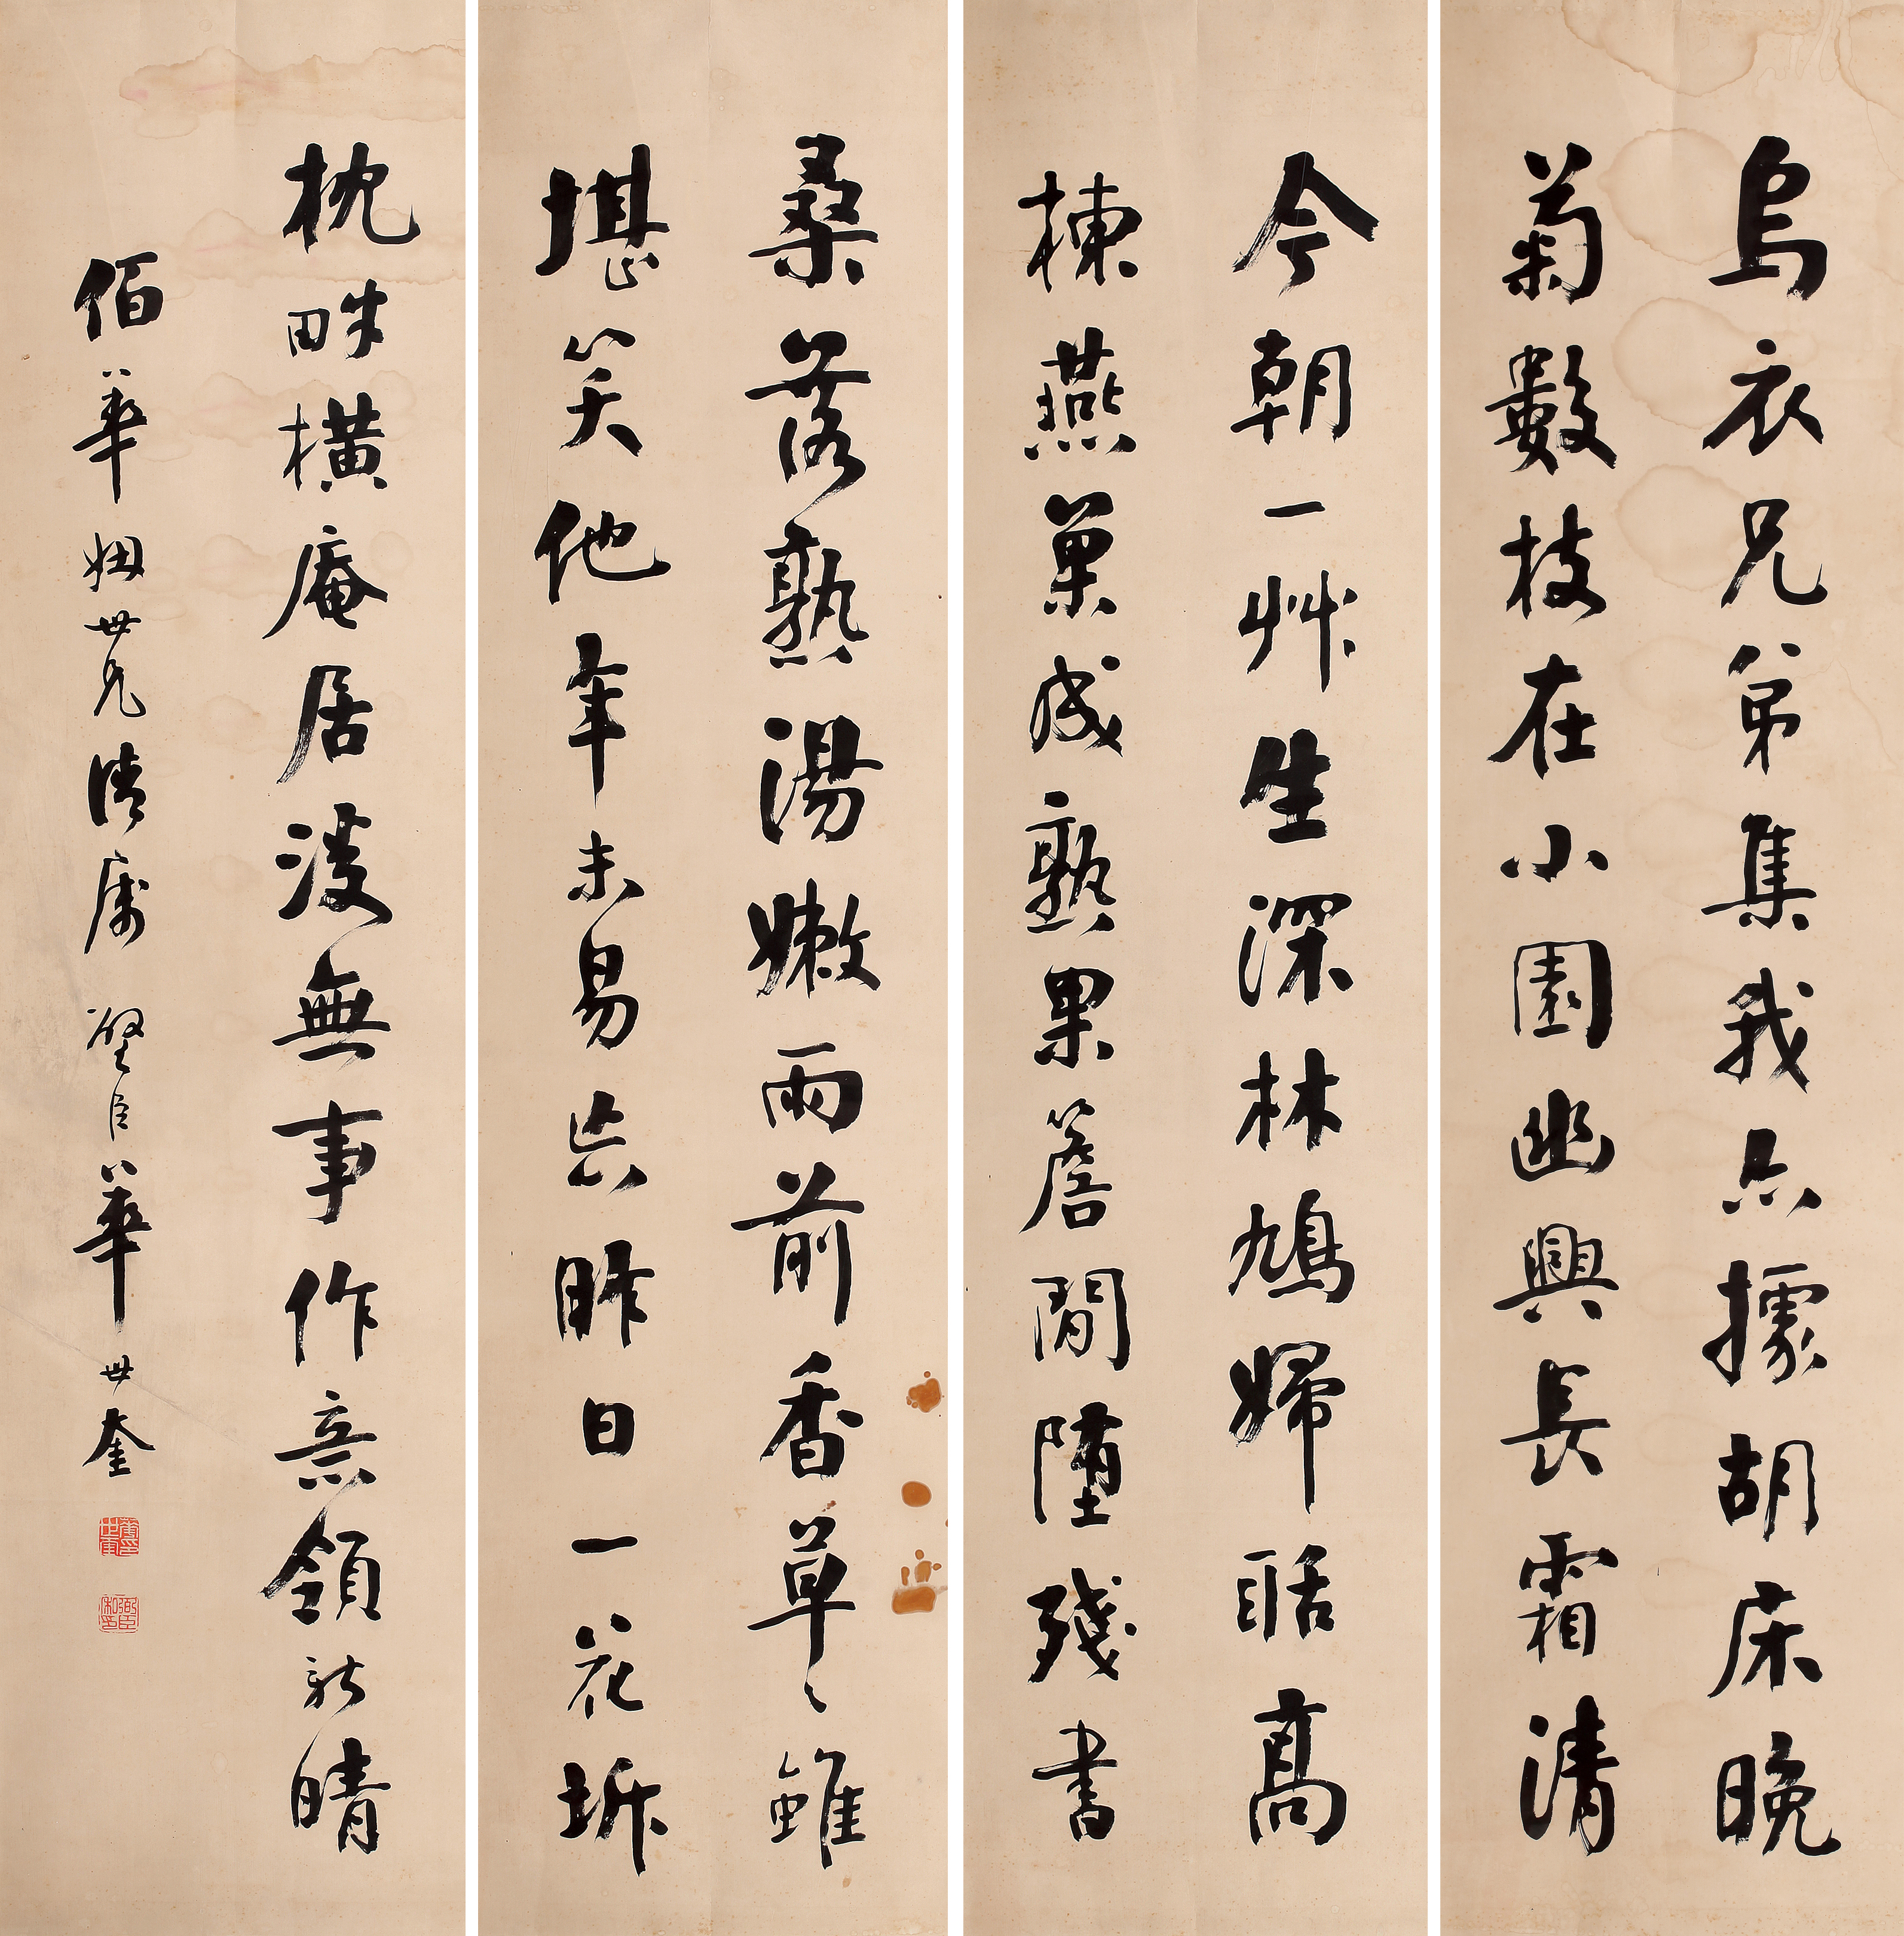 烏衣兄弟集我亦據胡床晚
菊數枝在小園幽興長霜清
今朝一艸生深林鳩婦聒高
棟燕巢成熟果簷間墮殘書
桑落熟湯嫩雨前香草々雖
堪笑他年未易忘昨日一花坼
枕畔橫庵居無事作意領新晴
佰華姻世兄清屬 璧臣華世奎
華印世奎
弼臣私印